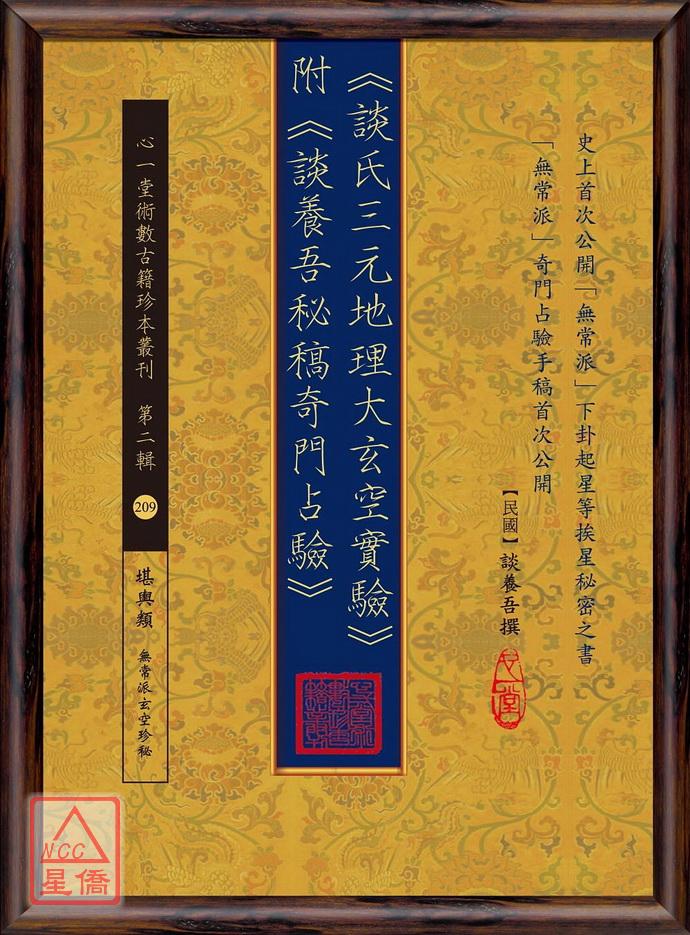 史上首次公開「無常派」下卦起星等挨星秘密之書
「無常派」奇門占驗手稿首次公開
【民國】談養吾撰
《談氏三元地理大玄空實驗》
附《談養吾秘稿奇門占驗》
心一堂術數古籍珍本叢刊 第二輯
209
堪輿類 無常派玄空珍秘
NCC
星僑